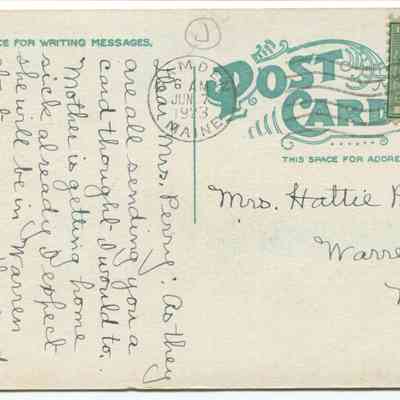 CE FOR WRITING MESSAGES.
POST
CARD
THIS SPACE FOR ADDRE
M D
8 AM
JUN 7
1923
MAINE
Dear Mrs. Perry: As they
are all sending you a
card thought I would to.
Mother is getting home
sick already I expect
she will be in Warren
Mrs. Hattie P
Warre
J